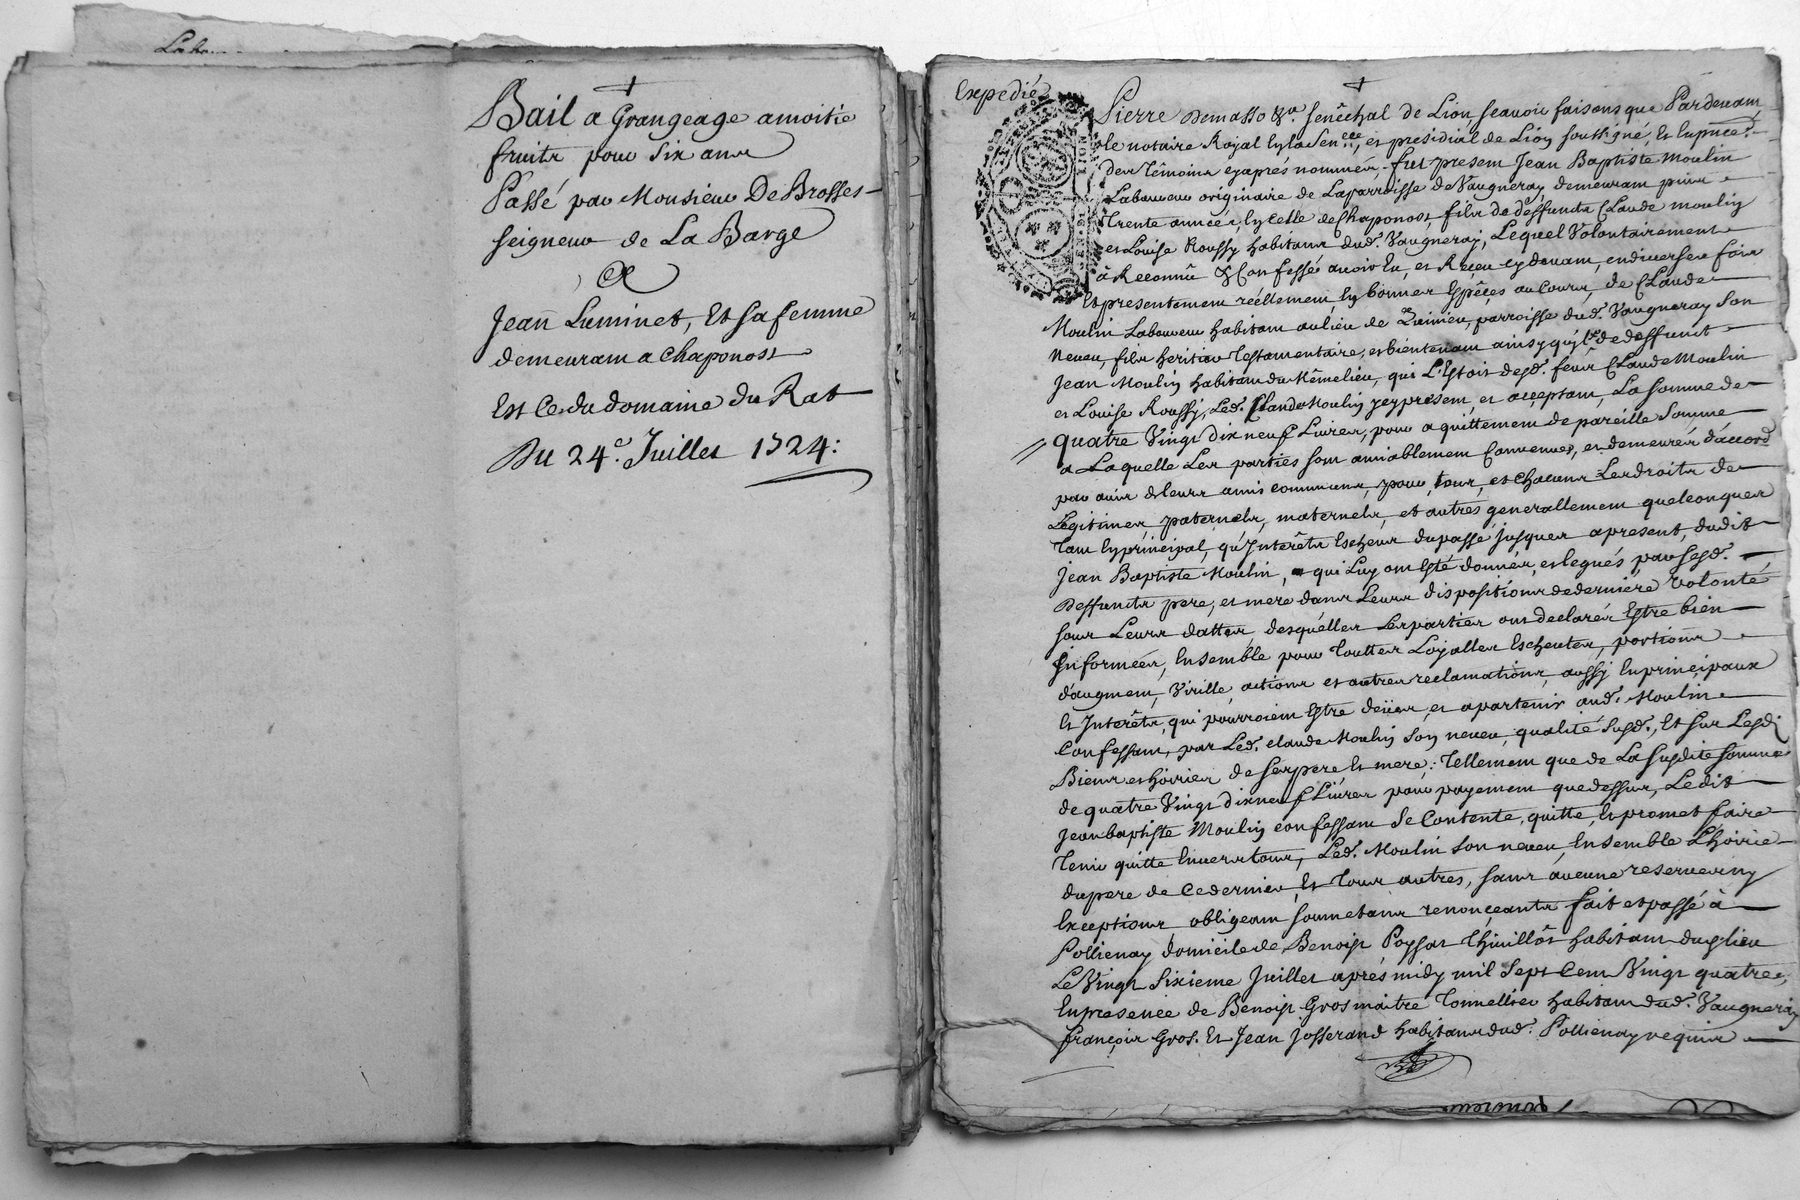 Bail a Grangeage amoitie
fruits pour Six ans
Passé par Monsieur De Brosses
seigneur de La Barge
&
Jean Luminet, Et sa femme
demeuram a Chaponost
Est Ce du domaine du Rat
Du 24e. Juillet 1724:
Expedié
Pierre Demasso &a. senêchal de Lion scavoir faisons que Pardevam
le notaire Royal En la Sen.ccé, et presidial de Lion soussigné, Et En pnce.
des Têmoins cyaprés nommés. fut presem Jean Baptiste Moulin
Laboureur originaire de La parroisse de Vaugneray demeuram puis
Trente années, En celle de Chaponost, fils de deffuncts Claude moulin
et Louise Roussy habitans dud. Vaugneray, Lequel Volontairement
à Reconnû & Confessé avoir Eu, et Receu cydevam, en diverses fois
Et presentemem réellemem, En bonnes Espêces au Cours, de Claude
Moulin Laboureur habitam au lieu de parroisse dud. Vaugneray Son
Neveu, fils heritier Testamentaire, et bientenam ainsy de deffunct
Jean Moulin habitam du Mêmelieu, qui L'Estoit desd. feus Claude Moulin
et Louise Roussy, Led. Claude Moulin icy presem, et acceptam, La somme de
quatre Vingt dix neuf Livres, pour aquittemem de pareille Somme
a Laquelle Les parties som amiablemem Convenues, et demeurés d'accord
par avis de leurs amis communs, pour, tous, et Chacuns Les droits de
Légitimes, paternels, maternels, et autres generallement quelconques
Tam En principal, qu'Interêts Escheus du passé jusques apresent, dudit
Jean Baptiste Moulin, qui Luy om Esté donnés, et legués par sesd.
Deffuncts pere, et mere dans Leurs dispositions de derniére Volonté
sous Leurs dattes, desquélles Les parties om declarés Estre bien
Informées, Ensemble pour Touttes Loyalles Escheutes, portions
d'augmem, Virille, actions et autres reclamations, aussy En principaux
Et Interêts, qui pourroiem Estre deües, et apartenir aud. Moulin
Confessam, par Led. claude Moulin son neveu, qualité Susd., Et sur Lesd.
Biens et hoiries de ses pere Et mere; Tellemem que de La susdite somme
de quatre Vingt dix neuf Livres pour payemem que dessus, Ledit
Jean baptiste Moulin confessam Se Contente, quitte, Et promet faire
Tenir quitte Envers tous, Led. Moulin Son neveu, Ensemble L'hoirie
du pere de Ce dernier, Et Tous autres, sans aucune reserve ny
Exceptions obligeam soumetans renonçeants fait et passé à
Pollienay domicile de Benoist habitam dud. lieu
Le Vingt Sixieme Juillet aprés midy mil Sept Cem Vingt quatre,
En presence de Benoist Gros maitre Tonnellier habitam dud. Vaugneray
François Gros. Et Jean Josserand habitans dud. Pollienay requis